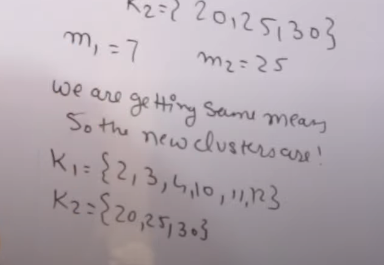 K2={ 20,25,30}
m1 = 7 m2 = 25
we are getting same means
So the new clusters are!
K1 = {2,3,4,10,11,12}
K2={20,25,30}